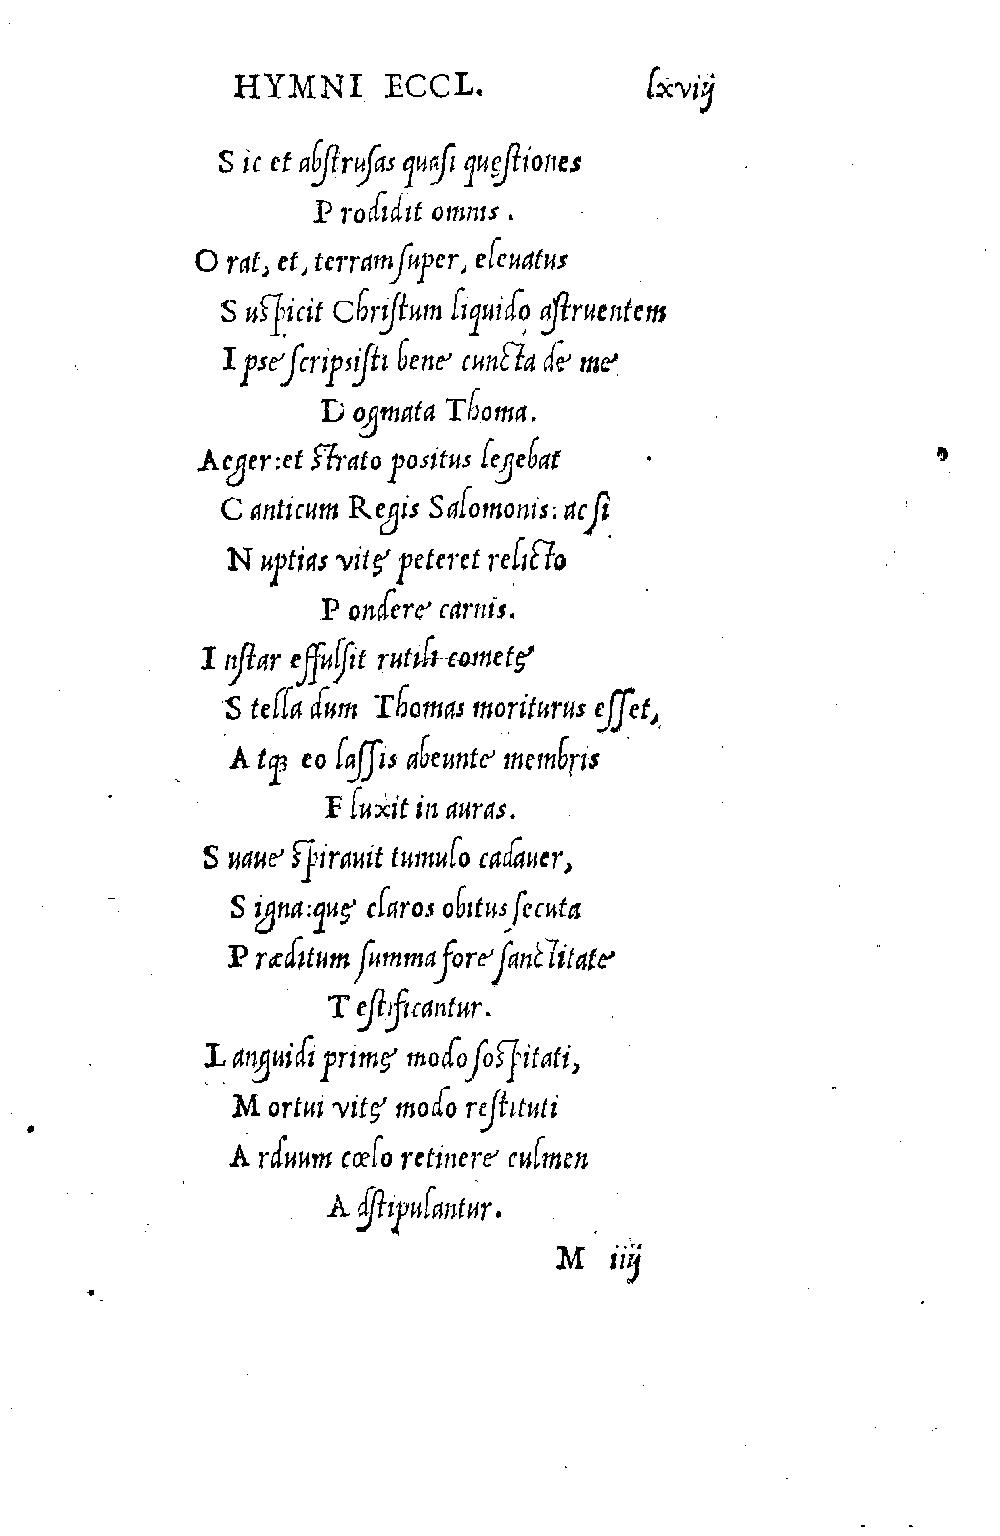 HYMNI ECCL. lxvij
Sic et abstrusas quasi quęstiones
Prodidit omnis.
Orat, et, terram super, eleuatus
Suspicit Christum liquido astruentem
Ipse scripsisti bene cuncta de me
Dogmata Thoma.
Aeger: et strato positus legebat
Canticum Regis Salomonis: ac si
Nuptias vitę peteret relicto
Pondere carnis.
Instar effulsit rutili cometę
Stella dum Thomas moriturus esset,
Atq; eo lassis abeunte membris
Fluxit in auras.
Suaue spirauit tumulo cadauer,
Signa: quę claros obitus secuta
Præditum summa fore sanctitate
Testificantur.
Languidi primę modo sospitati,
Mortui vitę modo restituti
Arduum cœlo retinere culmen
Adstipulantur.
M iiij